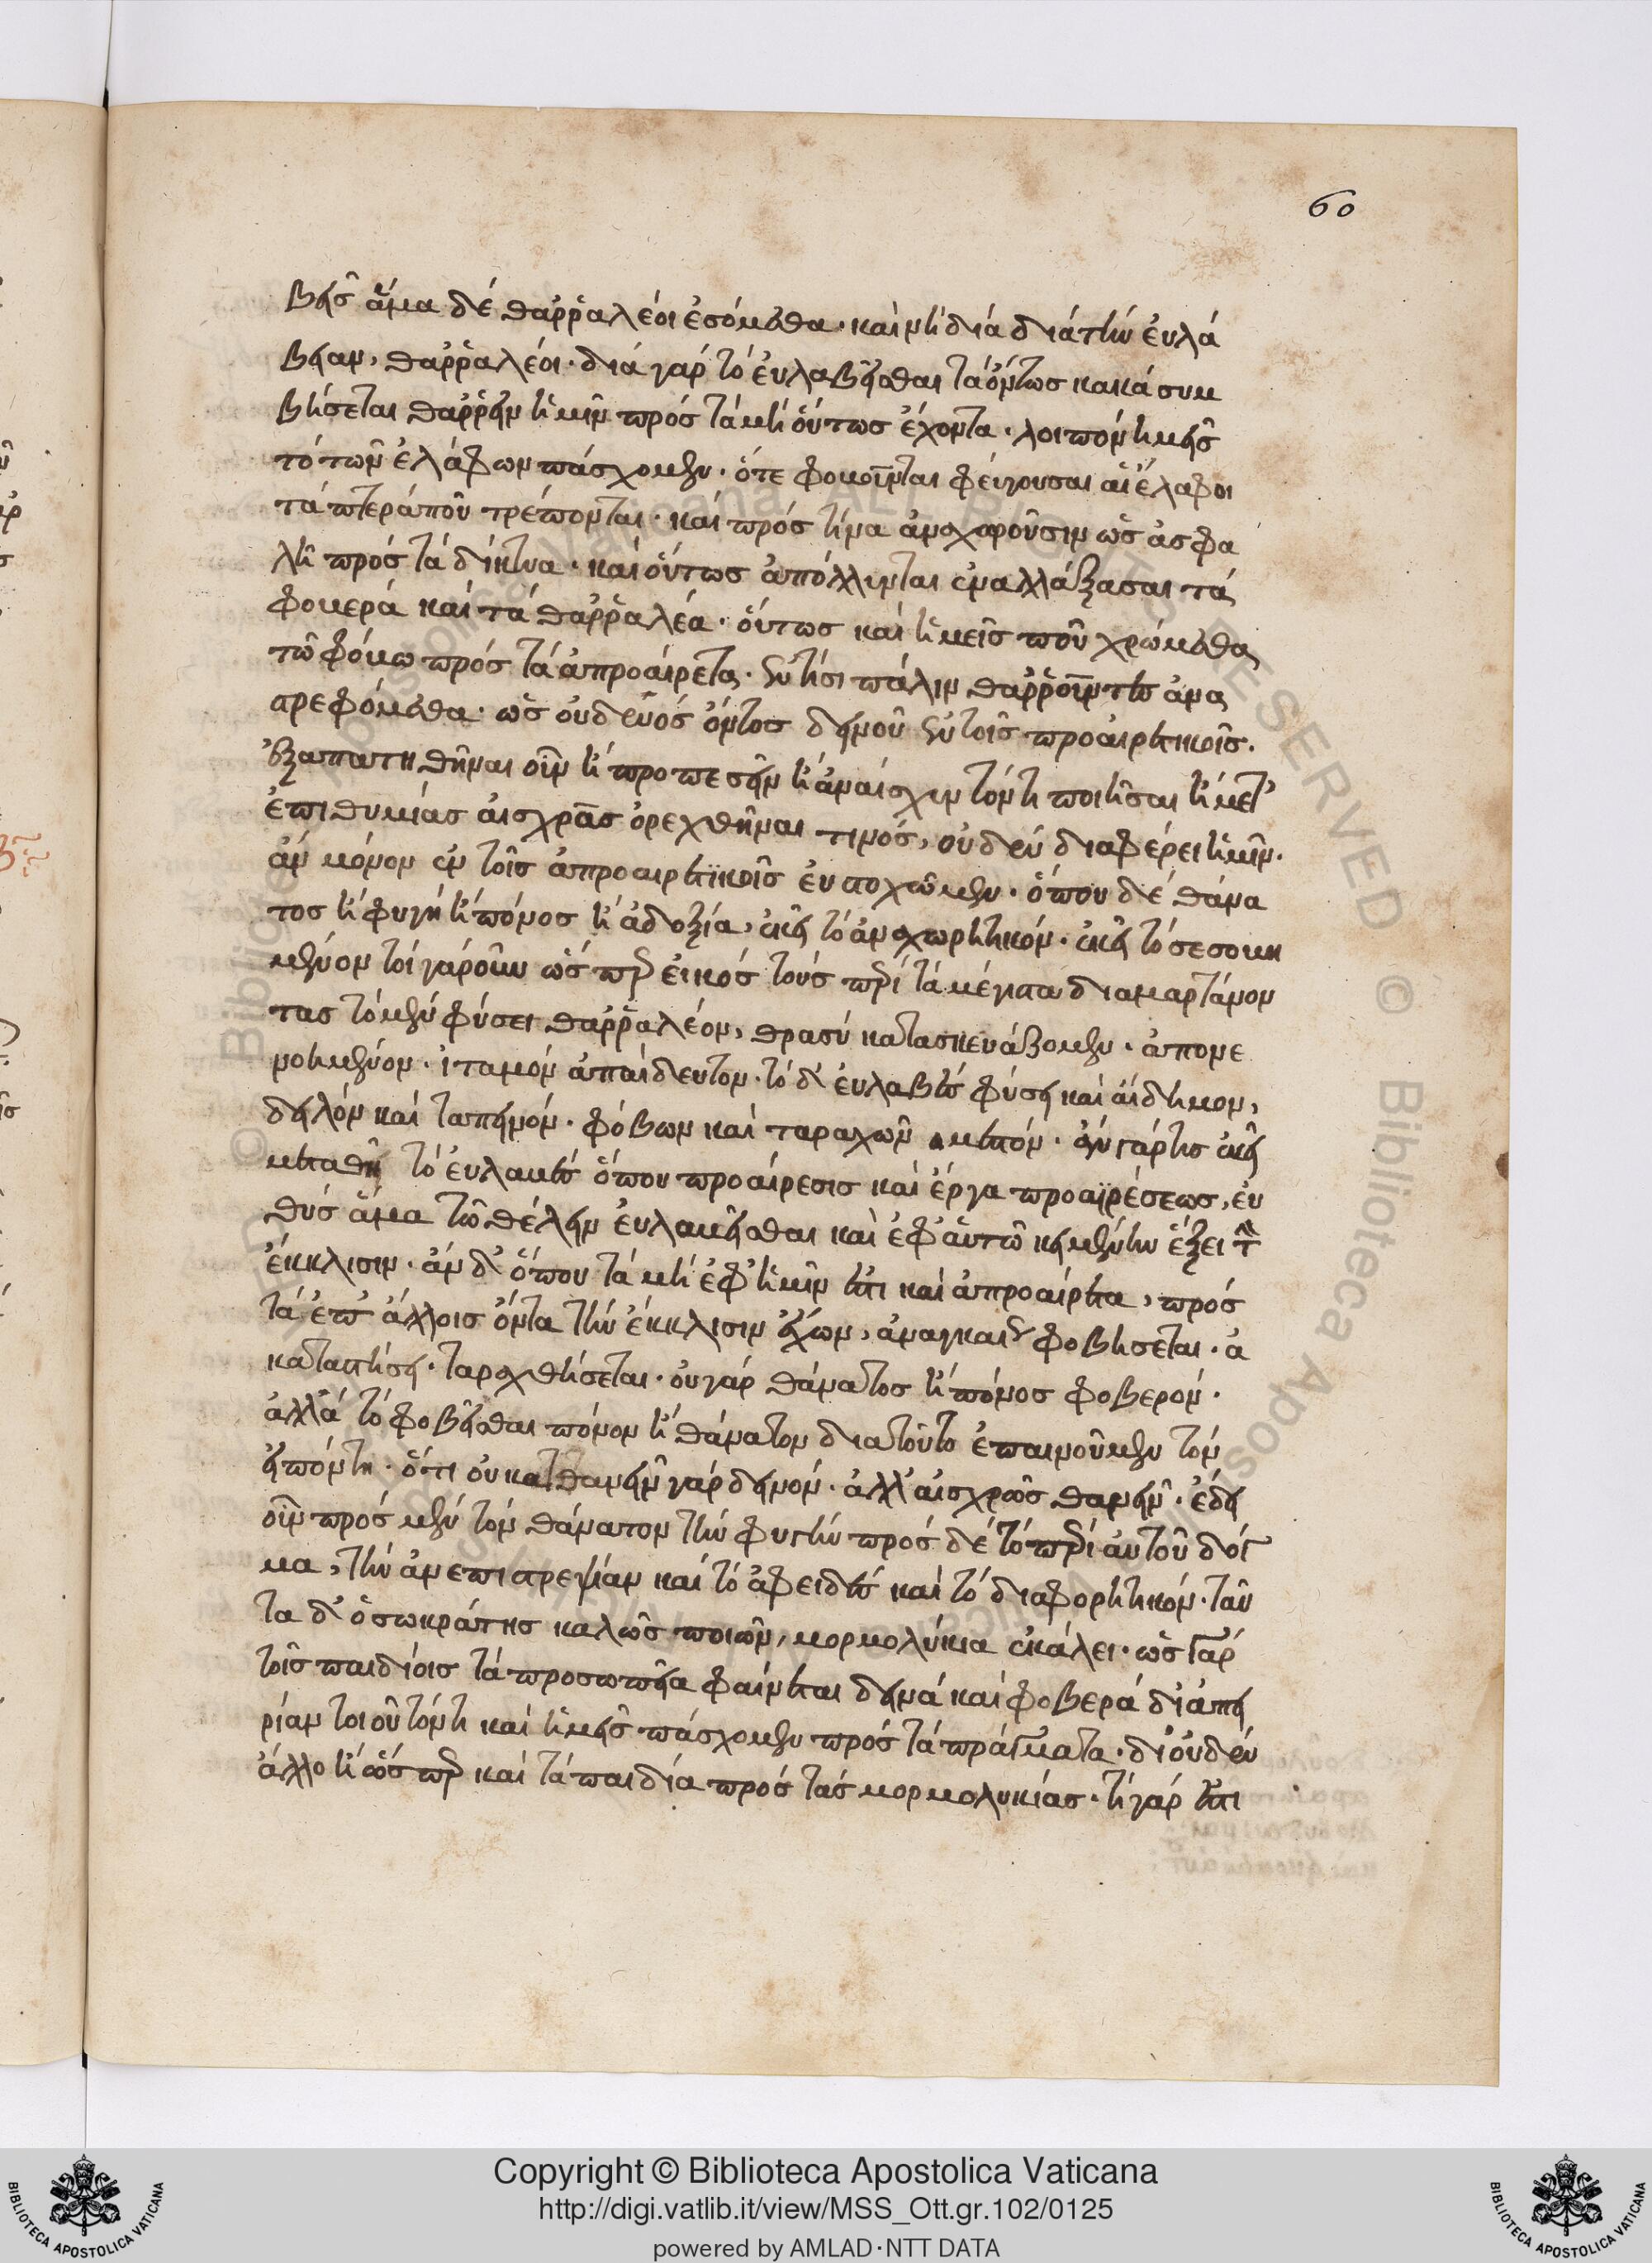 60
βεῖς ἅμα δέ θαῤῥαλέοι ἐσόμεθα· καὶ νὴ δία διὰ τὴν ἐυλά
βειαν, θαῤῥαλέοι· διά γάρ τό ἐυλαβεῖσθαι τά ὄντως κακά συμ
βήσεται θαῤῥεῖν ἡμῖν πρός τά μή ὅυτως ἔχοντα· λοιπόν ἡμεῖς
τό τῶν ἐλάφων πάσχομεν· ὅτε φοβοῦνται φέυγουσαι αἱ ἔλαφοι
τά πτερά ποῦ τρέπονται· καί πρός τίνα ἀναχωροῦσιν ὡς ἀσφα
λῆ πρός τά δίκτυα· καί ὅυτως ἀπόλλυνται ἐναλλάξασαι τά
φοβερά καί τά θαῤῥαλέα· ὅυτως καί ἡμεῖς ποῦ χρώμεθα
τῶ φόβω πρός τά ἀπροαίρετα· ἐν τίσι πάλιν θαῤῥοῦντες ἀνα
στρεφόμεθα· ὡς ὀυδενός ὄντος δεινοῦ ἐν τοῖς προαιρετικοῖς·
ἐξαπατηθῆναι οὖν ἤ προπεσεῖν ἤ ἀναίσχυντόν τι ποιῆσαι ἤ μετ'
ἐπιθυμίας ἀισχρᾶς ὀρεχθῆναι τινός, οὐδέν διαφέρει ἡμῖν·
ἄν μόνον ἐν τοῖς ἀπροαιρετικοῖς ἐυστοχῶμεν· ὅπου δέ θάνα
τος ἤ φυγή ἤ πόνος ἤ ἀδοξία, ἐκεῖ τό ἀναχωρητικόν· ἐκεῖ τό σεσοβη
μένον τοί γάρουν ὥσπερ ἐικός τούς περί τά μέγιστα διαμαρτάνον
τας τό μέν φύσει θαῤῥαλέον, θρασύ κατασκευάζομεν· ἀπονε
νοημένον· ἰταμόν ἀπαίδευτον· τό δ' ἐυλαβές φύσει καί ἀιδῆμον,
δειλόν καί ταπεινόν· φόβων καί ταραχῶν μεστόν· ἄν γάρ τις ἐκεῖ
μεταθῆ τό ἐυλαβές ὅπου προαίρεσις καί ἔργα προαϊρέσεως, ἐυ
θύς ἅμα τῶ θέλειν ἐυλαβεῖσθαι καὶ ἐφ' ἁυτῶ κειμένην ἕξει τὴν
ἔκκλισιν· ἄν δ' ὅπου τά μή ἐφ' ἡμῖν ἐστι καί ἀπροαίρετα, πρός
τά ἐπ' ἄλλοις ὄντα τήν ἔκκλισιν ἔχων, ἀναγκαίως φοβήσεται· ἀ
καταστήσει· ταραχθήσεται· ὀυ γάρ θάνατος ἤ πόνος φοβερόν·
ἀλλά τό φοβεῖσθαι πόνον ἤ θάνατον διατοῦτο ἐπαινοῦμεν τόν
εἰπόντα· ὅτι ὀυ κατθανεῖν γάρ δεινόν· ἀλλ' ἀισχρῶς θανεῖν· ἔδει
οὖν πρός μέν τόν θάνατον τήν φυγήν πρός δέ τό περί ἀυτοῦ δόγ
μα, τήν ἀνεπιστρεψίαν καί τό ἀφειδές καί τό διαφορητικόν· ταῦ
τα δ' ὁ σωκράτης καλῶς ποιῶν, μορμολύκια ἐκάλει· ὡς γάρ
τοῖς παιδίοις τά προσωπεῖα φαίνεται δεινά καί φοβερά δι' ἀπει
ρίαν τοιοῦτόν τι καί ἡμεῖς πάσχομεν πρός τά πράγματα· δι' ὀυδέν
ἄλλο ἤ ὥσπερ καί τά παιδία πρός τάς μορμολυκίας· τί γάρ ἐστι
Copyright © Biblioteca Apostolica Vaticana
http://digi.vatlib.it/view/MSS_Ott.gr.102/0125
powered by AMLAD·NTT DATA
BIBLIOTECA APOSTOLICA VATICANA
BIBLIOTECA APOSTOLICA VATICANA